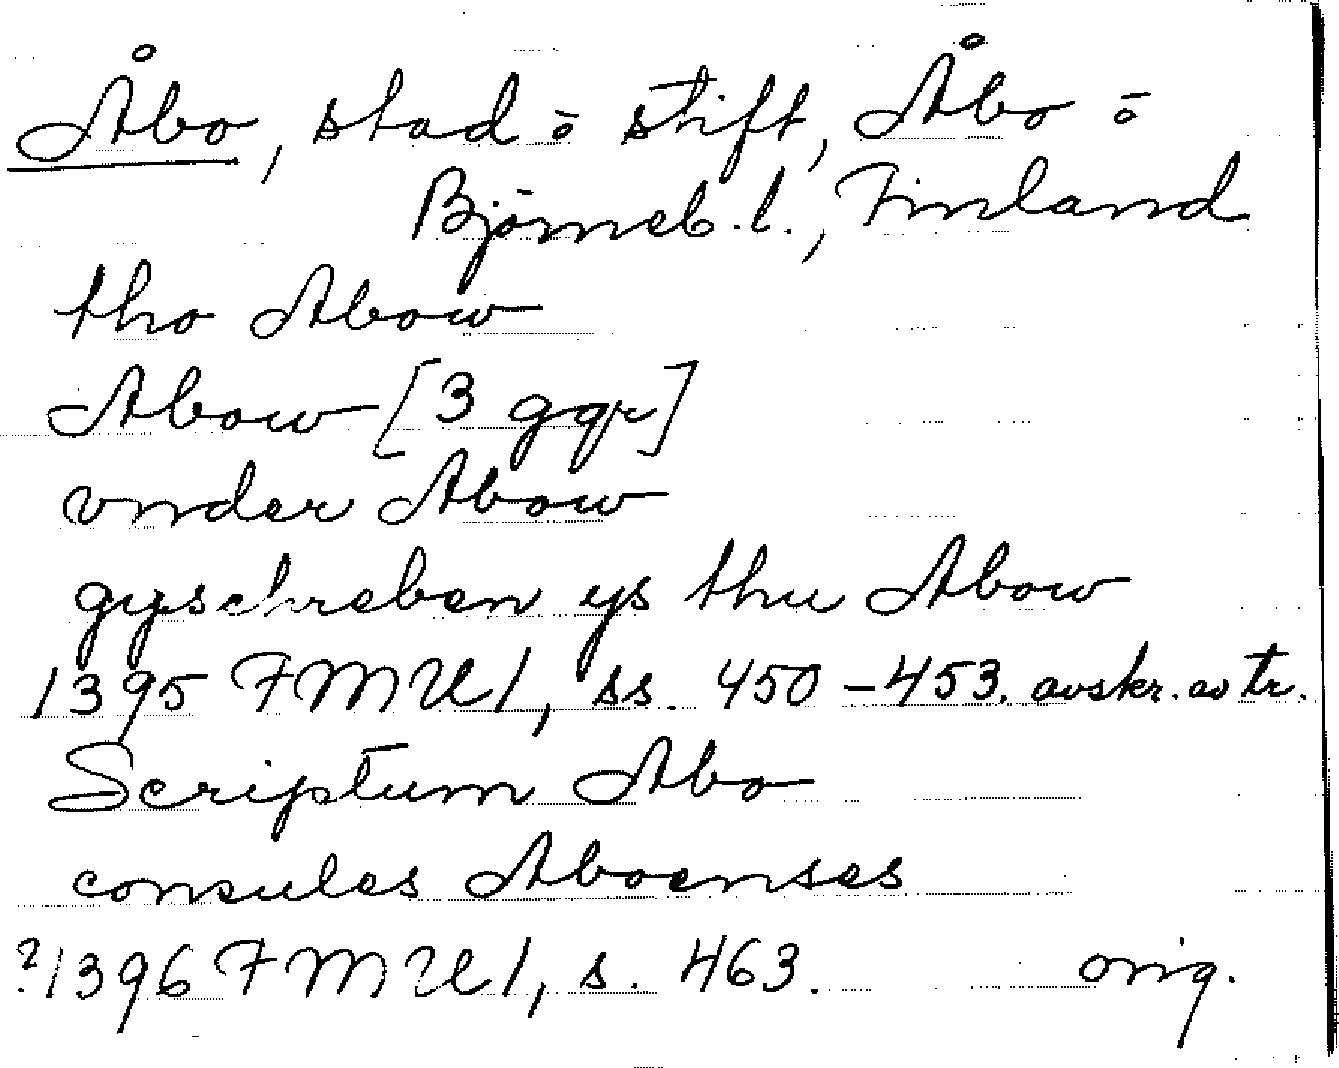 Åbo, stad ō stift, Åbo ō
Björneb. l., Finland
tho Abow
Abow [3 ggr]
vnder Abow
gyschreben ys thu Abow
1395 FMU 1, ss. 450-453. avskr. av tr.
Scriptum Abo
consules Aboenses
?1396 FMU 1, s. 463. orig.